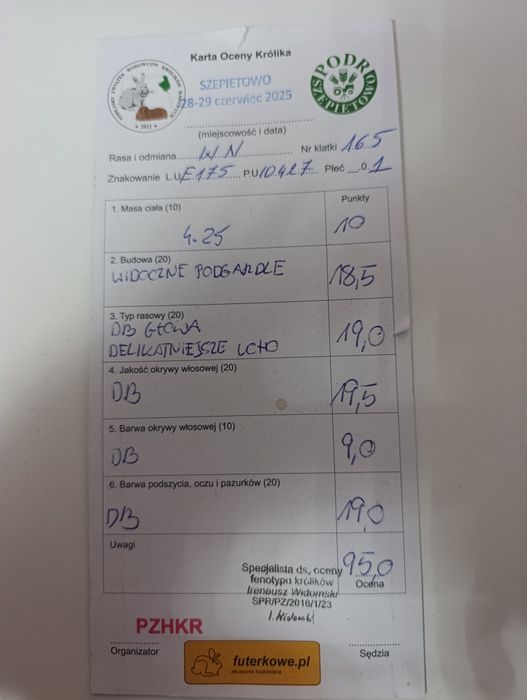 Karta Oceny Królika
POLSKI ZWIĄZEK HODOWCÓW KRÓLIKÓW RASOWYCH
* 2012 *
SZEPIETOWO
28-29 czerwiec 2025
PODR
SZEPIETOWO
(miejscowość i data)
Rasa i odmiana WN Nr klatki 165
Znakowanie L.U E175 P.U 10427 Płeć _.0 1
Punkty
1. Masa ciała (10)
4.25 10
2. Budowa (20)
WIDOCZNE PODGARDLE 18,5
3. Typ rasowy (20)
DB GŁOWA
DELIKATNIEJSZE UCHO 19,0
4. Jakość okrywy włosowej (20)
DB 19,5
5. Barwa okrywy włosowej (10)
DB 9,0
6. Barwa podszycia, oczu i pazurków (20)
DB 19,0
Uwagi
95,0
Ocena
Specjalista ds. oceny
fenotypu królików
Ireneusz Widomski
SPR/PZ/2016/1/23
I. Widomski
PZHKR
Organizator
Sędzia
futerkowe.pl
akcesoria hodowlane